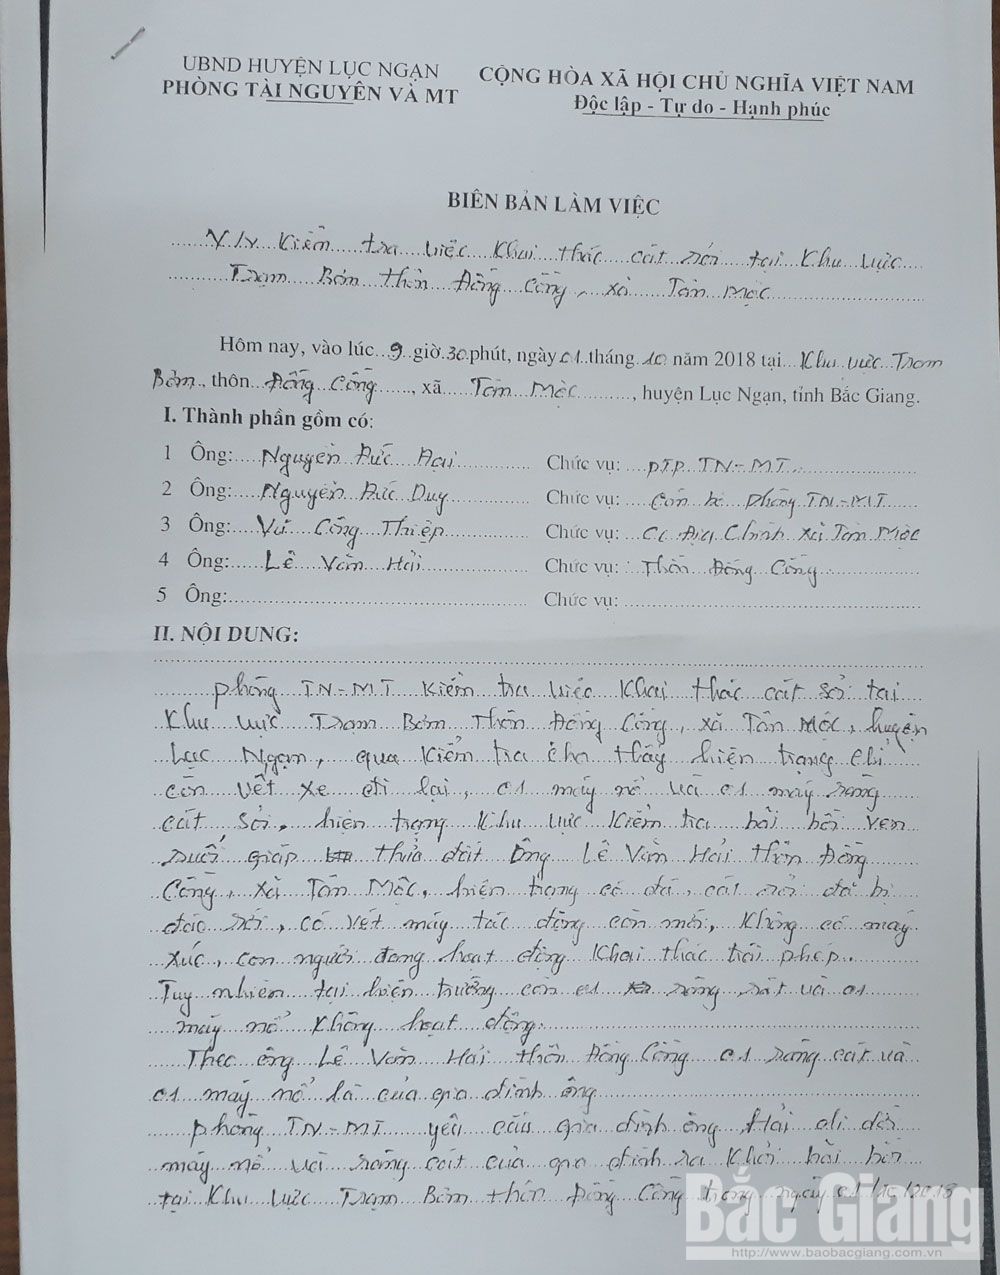 UBND HUYỆN LỤC NGẠN
PHÒNG TÀI NGUYÊN VÀ MT
CỘNG HÒA XÃ HỘI CHỦ NGHĨA VIỆT NAM
Độc lập - Tự do - Hạnh phúc
BIÊN BẢN LÀM VIỆC
V/v Kiểm tra việc Khai thác cát sỏi tại Khu vực
Trạm Bơm thôn Đồng Công, xã Tân Mộc
Hôm nay, vào lúc 9 giờ 30 phút, ngày 01 tháng 10 năm 2018 tại Khu vực Trạm
Bơm, thôn Đồng Công, xã Tân Mộc, huyện Lục Ngạn, tỉnh Bắc Giang.
I. Thành phần gồm có:
1 Ông: Nguyễn Đức Đại Chức vụ: PTP TN-MT
2 Ông: Nguyễn Đức Duy Chức vụ: Cán bộ Phòng TN-MT
3 Ông: Vũ Công Thiệp Chức vụ: CC Địa Chính xã Tân Mộc
4 Ông: Lê Văn Hải Chức vụ: Thôn Đồng Công
5 Ông: Chức vụ:
II. NỘI DUNG:
Phòng TN-MT Kiểm tra việc Khai thác cát sỏi tại
Khu vực Trạm Bơm Thôn Đồng Công, xã Tân Mộc, huyện
Lục Ngạn, qua Kiểm tra cho thấy hiện trạng chỉ
còn vết xe đi lại, 01 máy nổ và 01 máy sàng
cát, sỏi, hiện trạng Khu vực Kiểm tra bãi bồi ven
suối giáp thửa đất Ông Lê Văn Hải thôn Đồng
Công, xã Tân Mộc, hiện trạng có đá, cát sỏi đã bị
đào sới, có vết máy tác động còn mới, Không có máy
xúc, con người đang hoạt động Khai thác trái phép.
Tuy nhiên tại hiện trường còn 01 sàng cát và 01
máy nổ Không hoạt động.
Theo ông Lê Văn Hải thôn Đồng Công 01 sàng cát và
01 máy nổ là của gia đình ông
Phòng TN-MT yêu cầu gia đình ông Hải di dời
máy nổ và sàng cát của gia đình ra Khỏi bãi bồi
tại Khu vực Trạm Bơm thôn Đồng Công trong ngày 01/10/2018
Bắc Giang
http://www.baobacgiang.com.vn